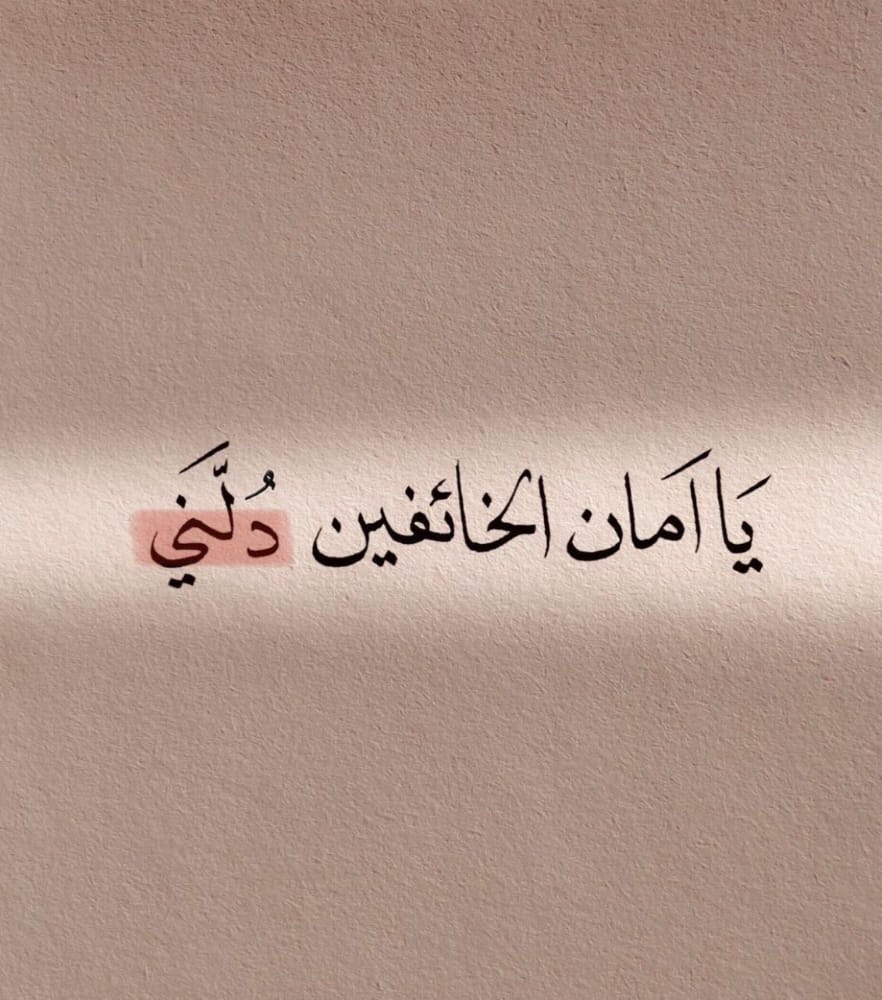 يَا اَمَان الخائفين دُلَّنَي